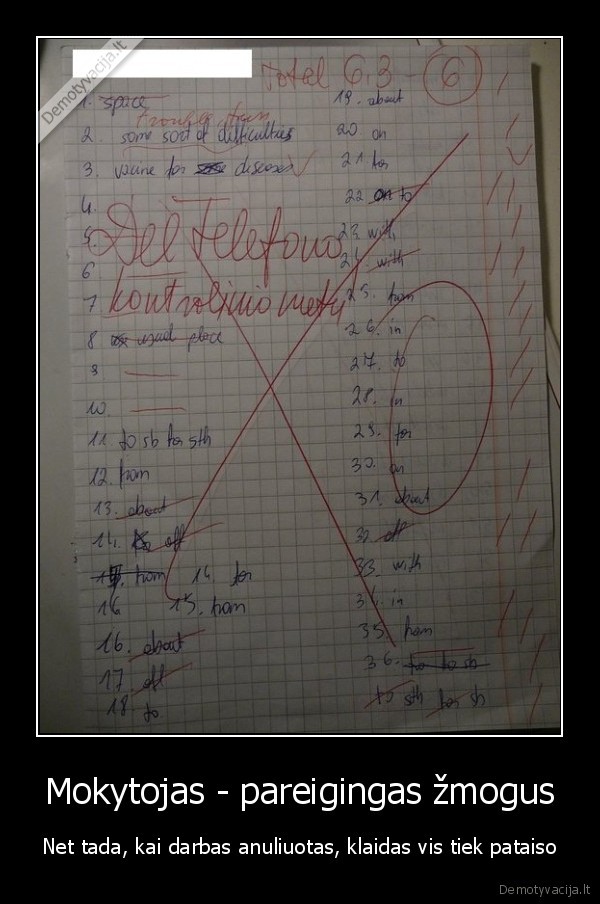 Demotyvacija.lt
Total 63 - 6
1. space
trouble
2. some sort of difficulties
3. for diseases
4.
5.
Dėl telefono
6
7
kontrolinio metu
8 usual place
9
10.
11. to sb for sth
12. from
13. about
14. off
from 14. for
16 15. from
16. about
17 off
18 to
19. about
20. on
21. for
22 on to
23. with
24. with
25. from
26. in
27. to
28. in
29. for
30. on
31. about
32. off
33. with
34. in
35. from
36. to to sb
to sth for sth
Mokytojas - pareigingas žmogus
Net tada, kai darbas anuliuotas, klaidas vis tiek pataiso
Demotyvacija.lt